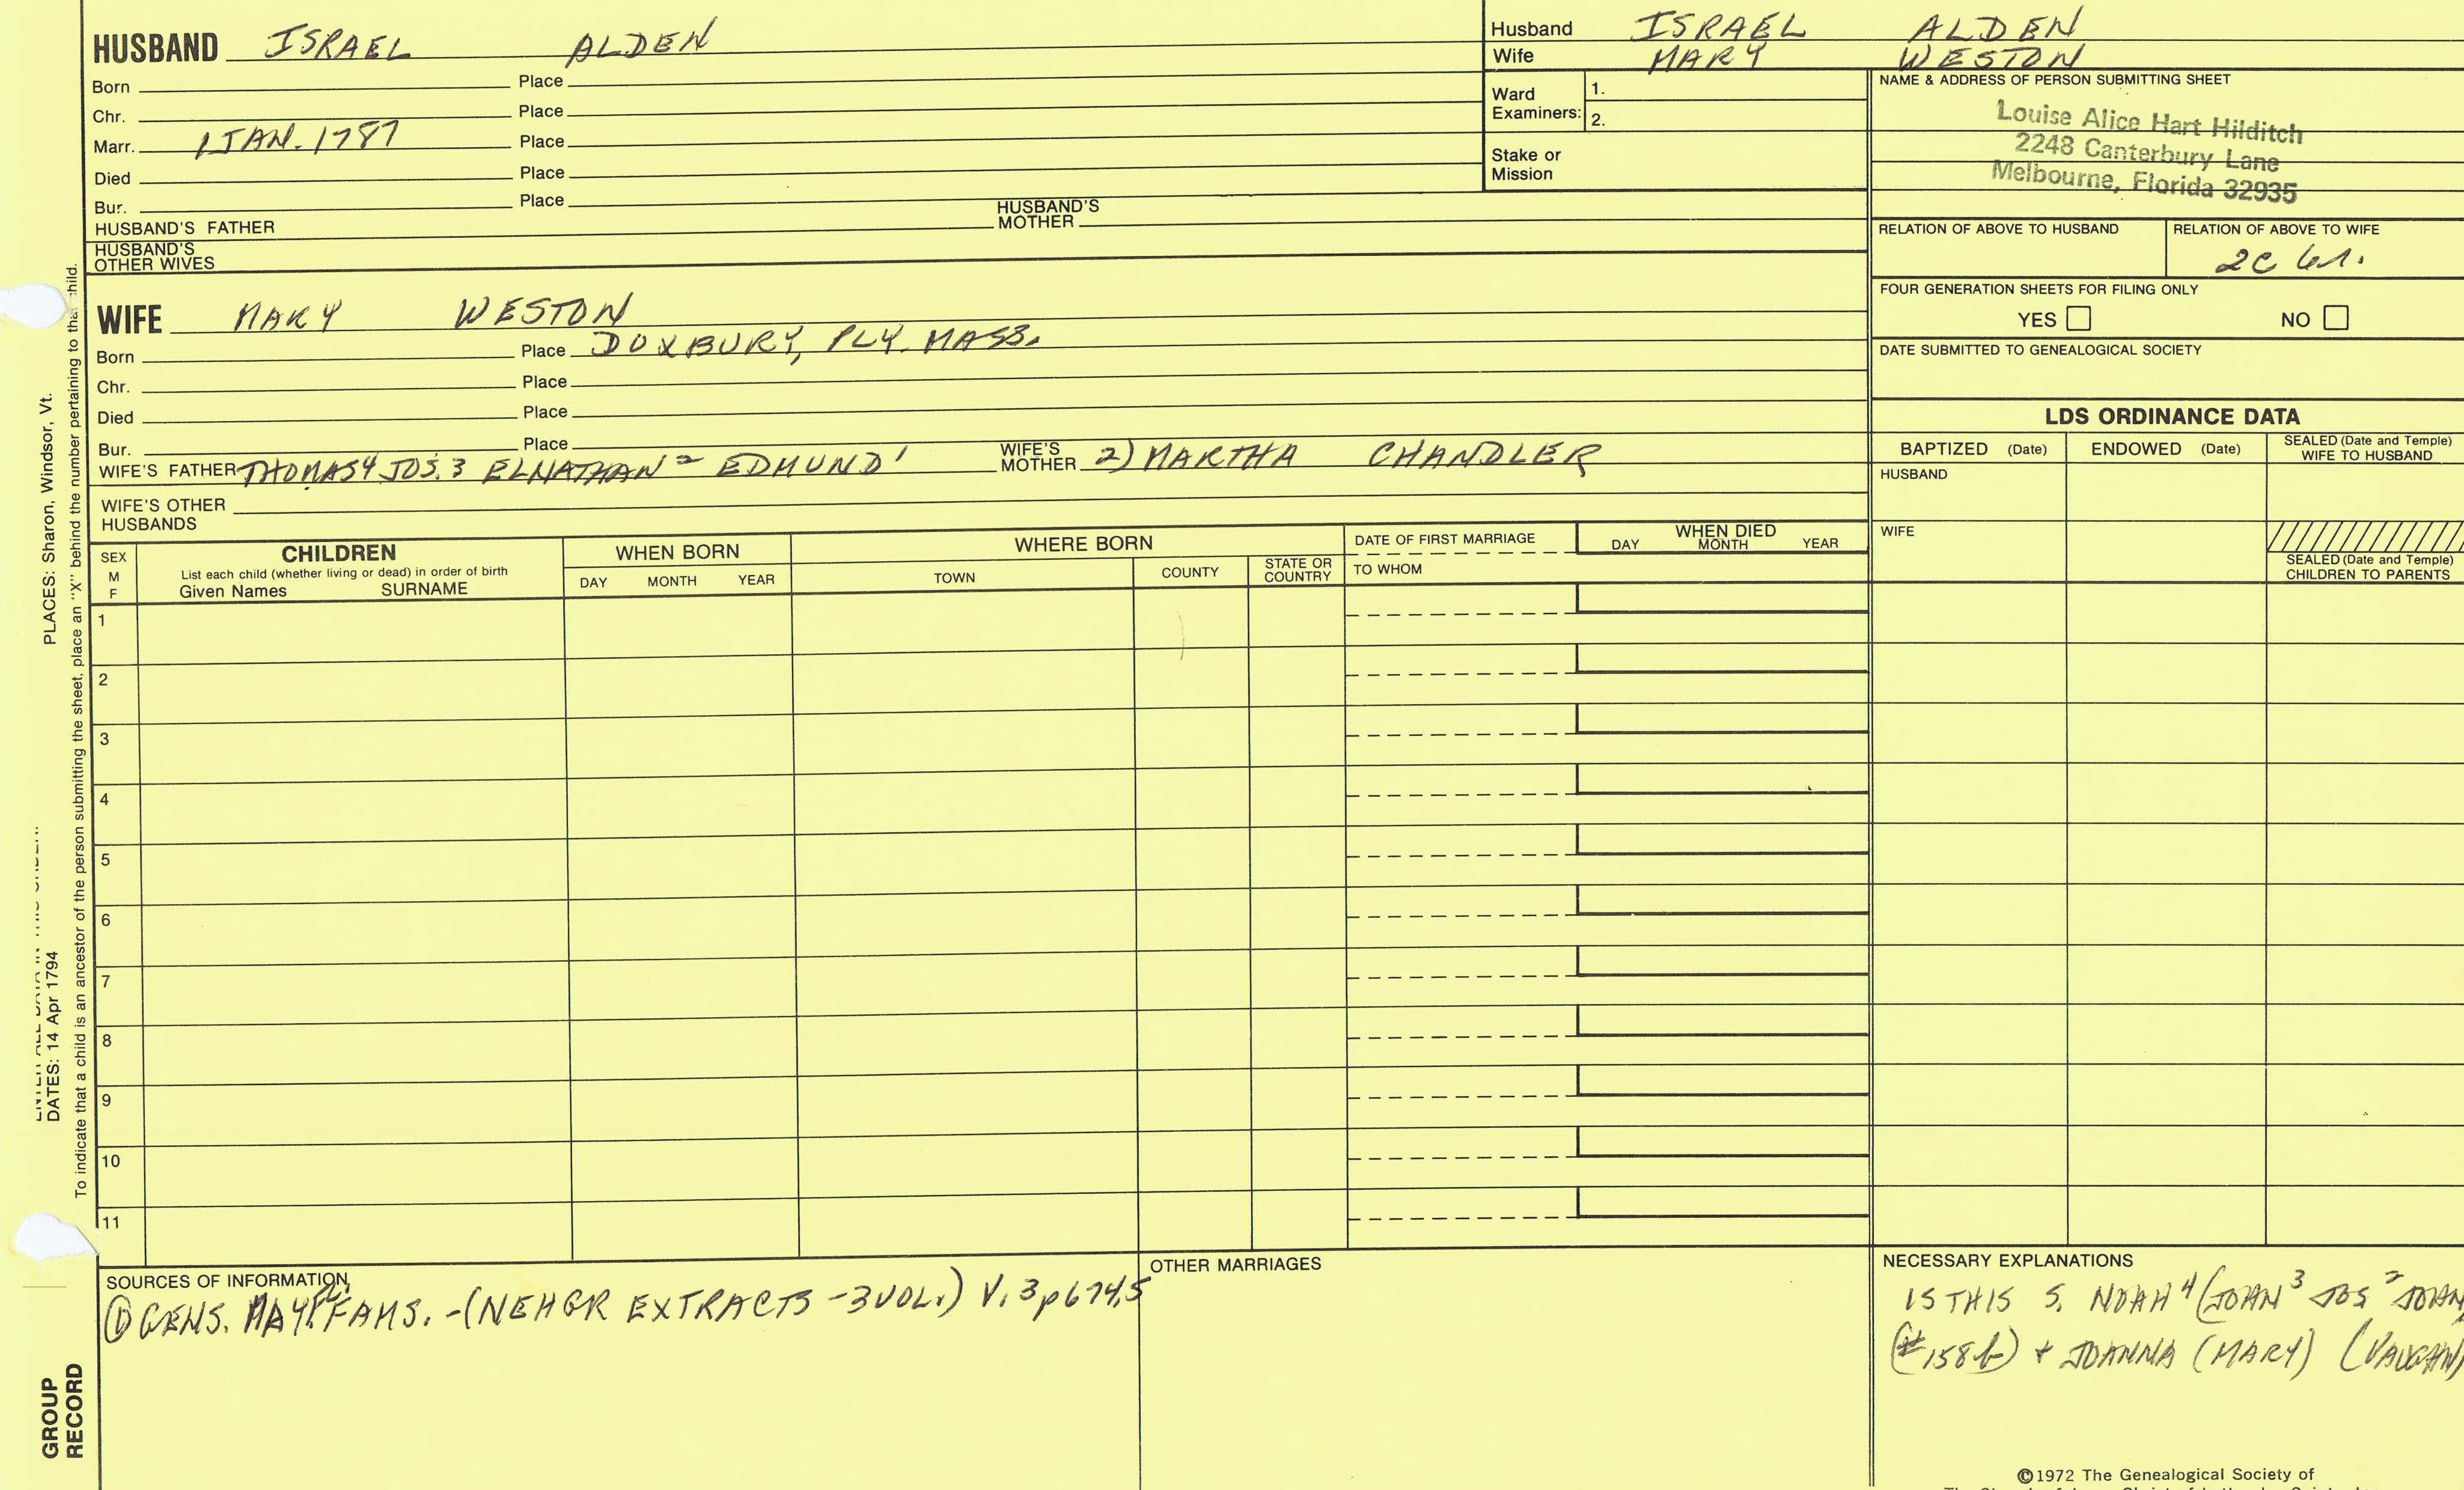 HUSBAND ISRAEL ALDEN
Born Place
Chr. Place
Marr. 1 JAN. 1787 Place
Died Place
Bur. Place
HUSBAND'S FATHER HUSBAND'S MOTHER
HUSBAND'S OTHER WIVES
Husband ISRAEL ALDEN
Wife MARY WESTON
Ward Examiners: 1.
2.
Stake or Mission
NAME & ADDRESS OF PERSON SUBMITTING SHEET
Louise Alice Hart Hilditch
2248 Canterbury Lane
Melbourne, Florida 32935
RELATION OF ABOVE TO HUSBAND
RELATION OF ABOVE TO WIFE
2C
FOUR GENERATION SHEETS FOR FILING ONLY
YES NO
DATE SUBMITTED TO GENEALOGICAL SOCIETY
WIFE MARY WESTON
Born Place DUXBURY, PLY. MASS.
Chr. Place
Died Place
Bur. Place
WIFE'S FATHER THOMAS4 JOS.3 ELNATHAN2 EDMUND1 WIFE'S MOTHER 2) MARTHA CHANDLER
WIFE'S OTHER HUSBANDS
LDS ORDINANCE DATA
BAPTIZED (Date) ENDOWED (Date) SEALED (Date and Temple) WIFE TO HUSBAND
HUSBAND
WIFE
SEALED (Date and Temple) CHILDREN TO PARENTS
SEX M F
CHILDREN
List each child (whether living or dead) in order of birth
Given Names SURNAME
WHEN BORN
DAY MONTH YEAR
WHERE BORN
TOWN COUNTY STATE OR COUNTRY
DATE OF FIRST MARRIAGE
TO WHOM
WHEN DIED
DAY MONTH YEAR
1
2
3
4
5
6
7
8
9
10
11
SOURCES OF INFORMATION
① GENS. MAYFL. FAMS. - (NEHGR EXTRACTS - 3 VOL.) V. 3 p 674,5
OTHER MARRIAGES
NECESSARY EXPLANATIONS
IS THIS S. NOAH4 (JOHN3 JOS2 JOHN
(#158b) + JOANNA (MARY) (VAUGHN)
©1972 The Genealogical Society of
PLACES: Sharon, Windsor, Vt.
DATES: 14 Apr 1794
To indicate that a child is an ancestor of the person submitting the sheet, place an "X" behind the number pertaining to that child.
GROUP
RECORD